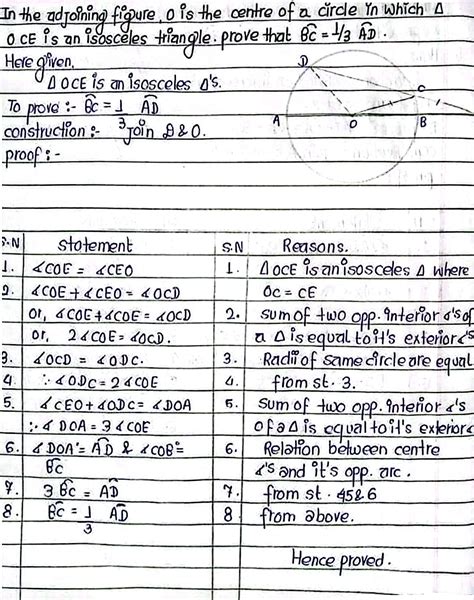 In the adjoining figure, O is the centre of a circle in which Δ
OCE is an isosceles triangle. prove that B̂C = 1/3 ÂD.
Here given,
Δ OCE is an isosceles Δ's.
To prove :- B̂C = 1/3 ÂD
construction :- Join D & O.
proof :-
D
C
A
O
B
S.N statement S.N Reasons.
1. ∠COE = ∠CEO 1. Δ OCE is an isosceles Δ where
2. ∠COE + ∠CEO = ∠OCD OC = CE
or, ∠COE + ∠COE = ∠OCD 2. sum of two opp. interior ∠'s of
or, 2∠COE = ∠OCD. a Δ is equal to it's exterior ∠'s
3. ∠OCD = ∠ODC. 3. Radii of same circle are equal
4. ∵ ∠ODC = 2∠COE 4. from st. 3.
5. ∠CEO + ∠ODC = ∠DOA 5. Sum of two opp. interior ∠'s
∴ ∠DOA = 3∠COE of a Δ is equal to it's exterior ∠
6. ∠DOA = ÂD & ∠COB = 6. Relation between centre
B̂C ∠'s and it's opp. arc.
7. 3 B̂C = ÂD 7. from st. 4 5 & 6
8. B̂C = 1/3 ÂD 8 from above.
Hence proved.